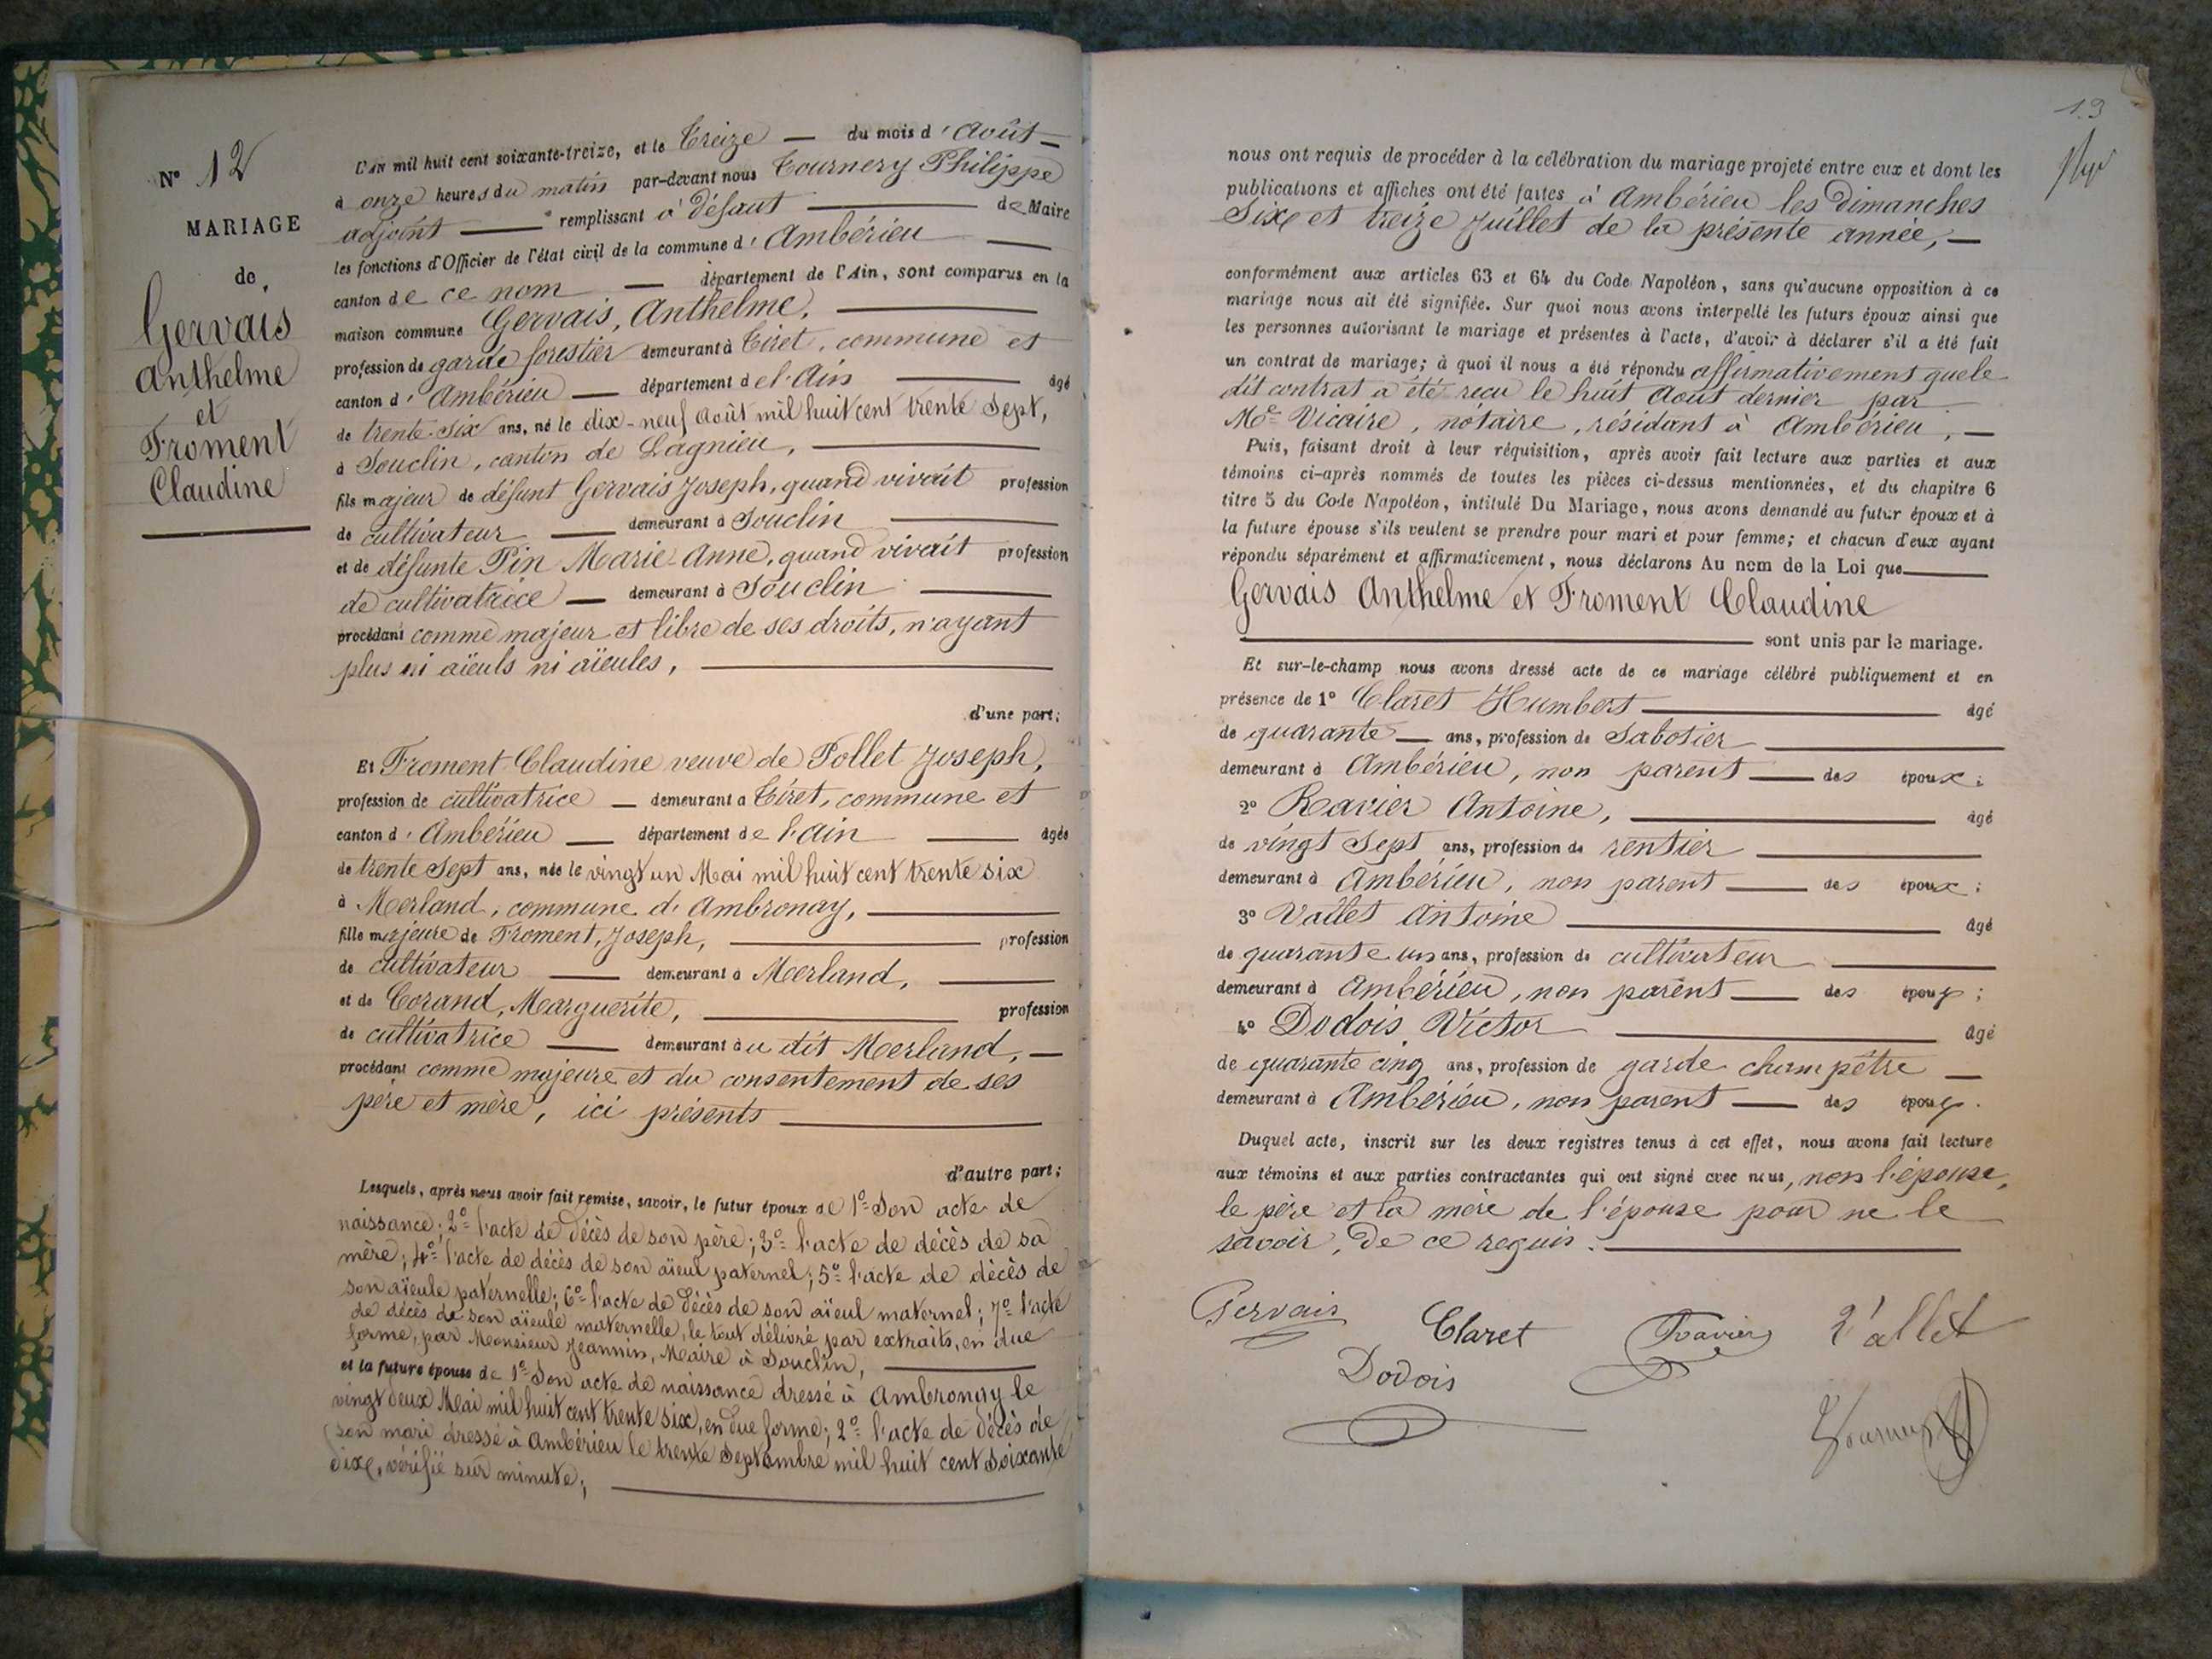 N° 12
MARIAGE
de
Gervais
Anthelme
et
Froment
Claudine
L'AN mil huit cent soixante-treize, et le Treize du mois d'Août
à onze heures du matin par-devant nous Tournery Philippe
adjoint remplissant à défaut de Maire
les fonctions d'Officier de l'état civil de la commune d'Ambérieu
canton de ce nom département de l'Ain, sont comparus en la
maison commune Gervais, Anthelme,
profession de garde forestier demeurant à Tiret, commune et
canton d'Ambérieu département de l'Ain âgé
de trente-six ans, né le dix-neuf Août mil huit cent trente sept,
à Souclin, canton de Lagnieu,
fils majeur de défunt Gervais Joseph, quand vivait profession
de cultivateur demeurant à Souclin
et de défunte Pin Marie-Anne, quand vivait profession
de cultivatrice demeurant à Souclin
procédant comme majeur et libre de ses droits, n'ayant
plus ni aïeuls ni aïeules,
d'une part;
Et Froment Claudine veuve de Follet Joseph,
profession de cultivatrice demeurant à Tiret, commune et
canton d'Ambérieu département de l'Ain âgée
de trente sept ans, née le vingt un Mai mil huit cent trente six
à Merland, commune d'Ambronay,
fille majeure de Froment, Joseph, profession
de cultivateur demeurant à Merland,
et de Corand, Marguerite, profession
de cultivatrice demeurant àu dit Merland,
procédant comme majeure et du consentement de ses
père et mère, ici présents
d'autre part;
Lesquels, après nous avoir fait remise, savoir, le futur époux de 1° Son acte de
naissance; 2° l'acte de décès de son père; 3° l'acte de décès de sa
mère; 4° l'acte de décès de son aïeul paternel; 5° l'acte de décès de
son aïeule paternelle; 6° l'acte de décès de son aïeul maternel; 7° l'acte
de décès de son aïeule maternelle, le tout délivré par extraits, en due
forme, par Monsieur Jeannin, Maire à Souclin,
et la future épouse de 1° Son acte de naissance dressé à Ambronay le
vingt deux Mai mil huit cent trente six, en due forme; 2° l'acte de décès de
son mari dressé à Ambérieu le trente Septembre mil huit cent soixante
dix, vérifié sur minute;
13
nous ont requis de procéder à la célébration du mariage projeté entre eux et dont les
publications et affiches ont été faites à Ambérieu les Dimanches
Six et treize Juillet de la présente année,
conformément aux articles 63 et 64 du Code Napoléon, sans qu'aucune opposition à ce
mariage nous ait été signifiée. Sur quoi nous avons interpellé les futurs époux ainsi que
les personnes autorisant le mariage et présentes à l'acte, d'avoir à déclarer s'il a été fait
un contrat de mariage; à quoi il nous a été répondu affirmativement que le
dit contrat a été reçu le huit Août dernier par
Me Vicaire, notaire, résidant à Ambérieu,
Puis, faisant droit à leur réquisition, après avoir fait lecture aux parties et aux
témoins ci-après nommés de toutes les pièces ci-dessus mentionnées, et du chapitre 6
titre 5 du Code Napoléon, intitulé Du Mariage, nous avons demandé au futur époux et à
la future épouse s'ils veulent se prendre pour mari et pour femme; et chacun d'eux ayant
répondu séparément et affirmativement, nous déclarons Au nom de la Loi que
Gervais Anthelme et Froment Claudine
sont unis par le mariage.
Et sur-le-champ nous avons dressé acte de ce mariage célébré publiquement et en
présence de 1° Claret Humbert âgé
de quarante ans, profession de Sabotier
demeurant à Ambérieu, non parent des époux;
2° Ravier Antoine, âgé
de vingt sept ans, profession de rentier
demeurant à Ambérieu, non parent des époux;
3° Vallet Antoine âgé
de quarante un ans, profession de cultivateur
demeurant à Ambérieu, non parent des époux;
4° Dodois Victor âgé
de quarante cinq ans, profession de garde champêtre
demeurant à Ambérieu, non parent des époux.
Duquel acte, inscrit sur les deux registres tenus à cet effet, nous avons fait lecture
aux témoins et aux parties contractantes qui ont signé avec nous, non l'épouse,
le père et la mère de l'épouse pour ne le
savoir, de ce requis.
Gervais Claret Ravier Vallet
Dodois
Tournery